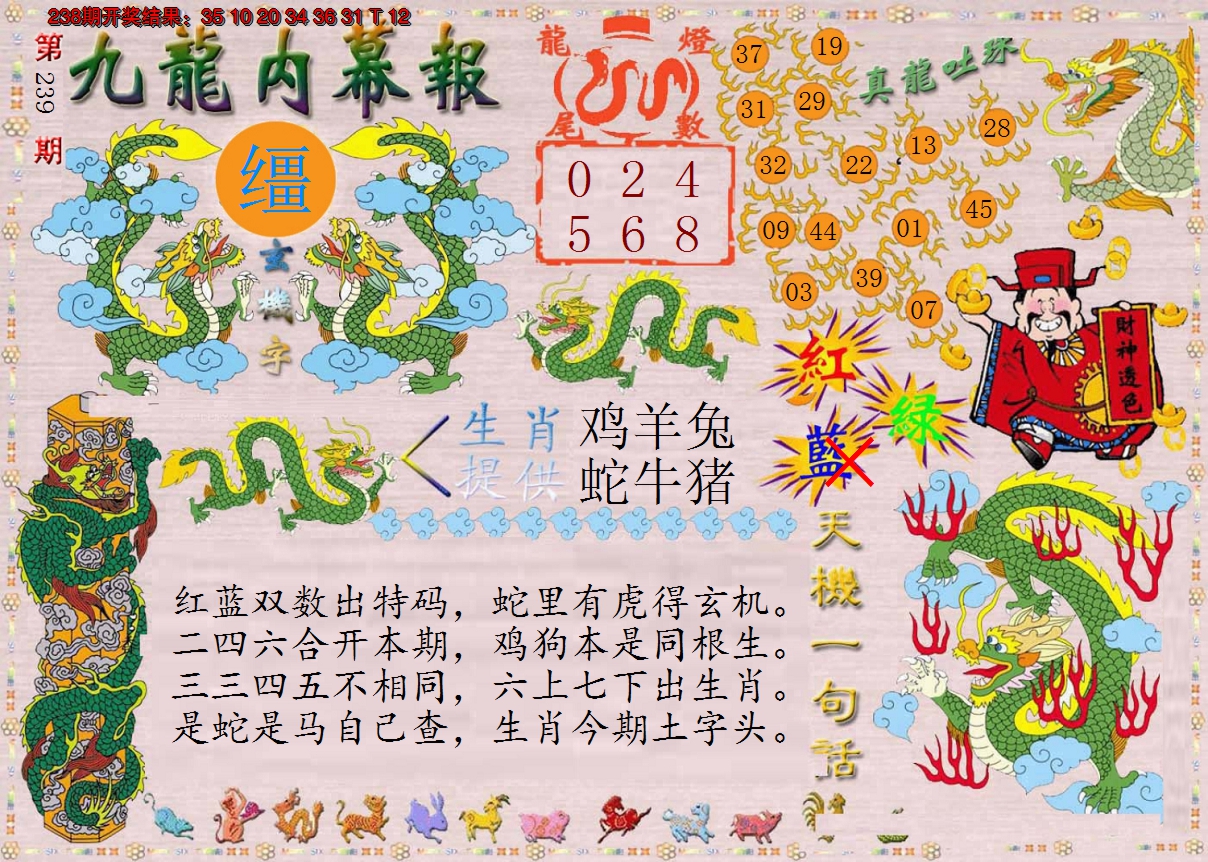 238期开奖结果：35 10 20 34 36 31 T 12
第239期
九龍内幕報
龍燈
尾數
0 2 4
5 6 8
真龍吐珠
37 19
31 29
13 28
32 22
45
09 44 01
39
03 07
缰
玄機字
紅
綠
藍
財神透色
生肖 鸡羊兔
提供 蛇牛猪
天機一句話
红蓝双数出特码，蛇里有虎得玄机。
二四六合开本期，鸡狗本是同根生。
三三四五不相同，六上七下出生肖。
是蛇是马自己查，生肖今期土字头。